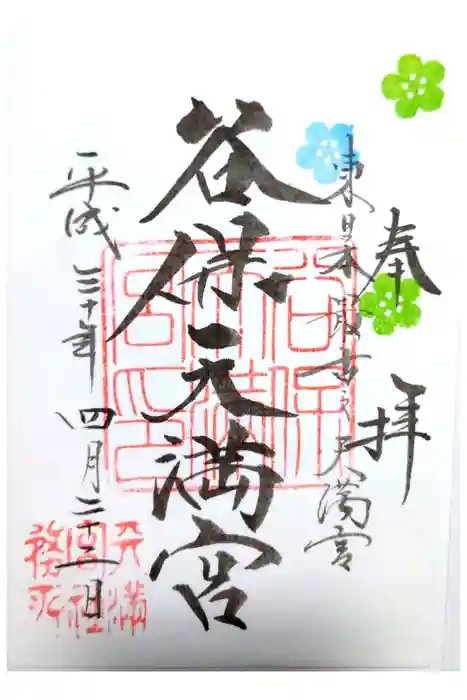 奉拝
東日本最古之天満宮
谷保天満宮
平成三十年四月二十二日
天満
宮社
務所